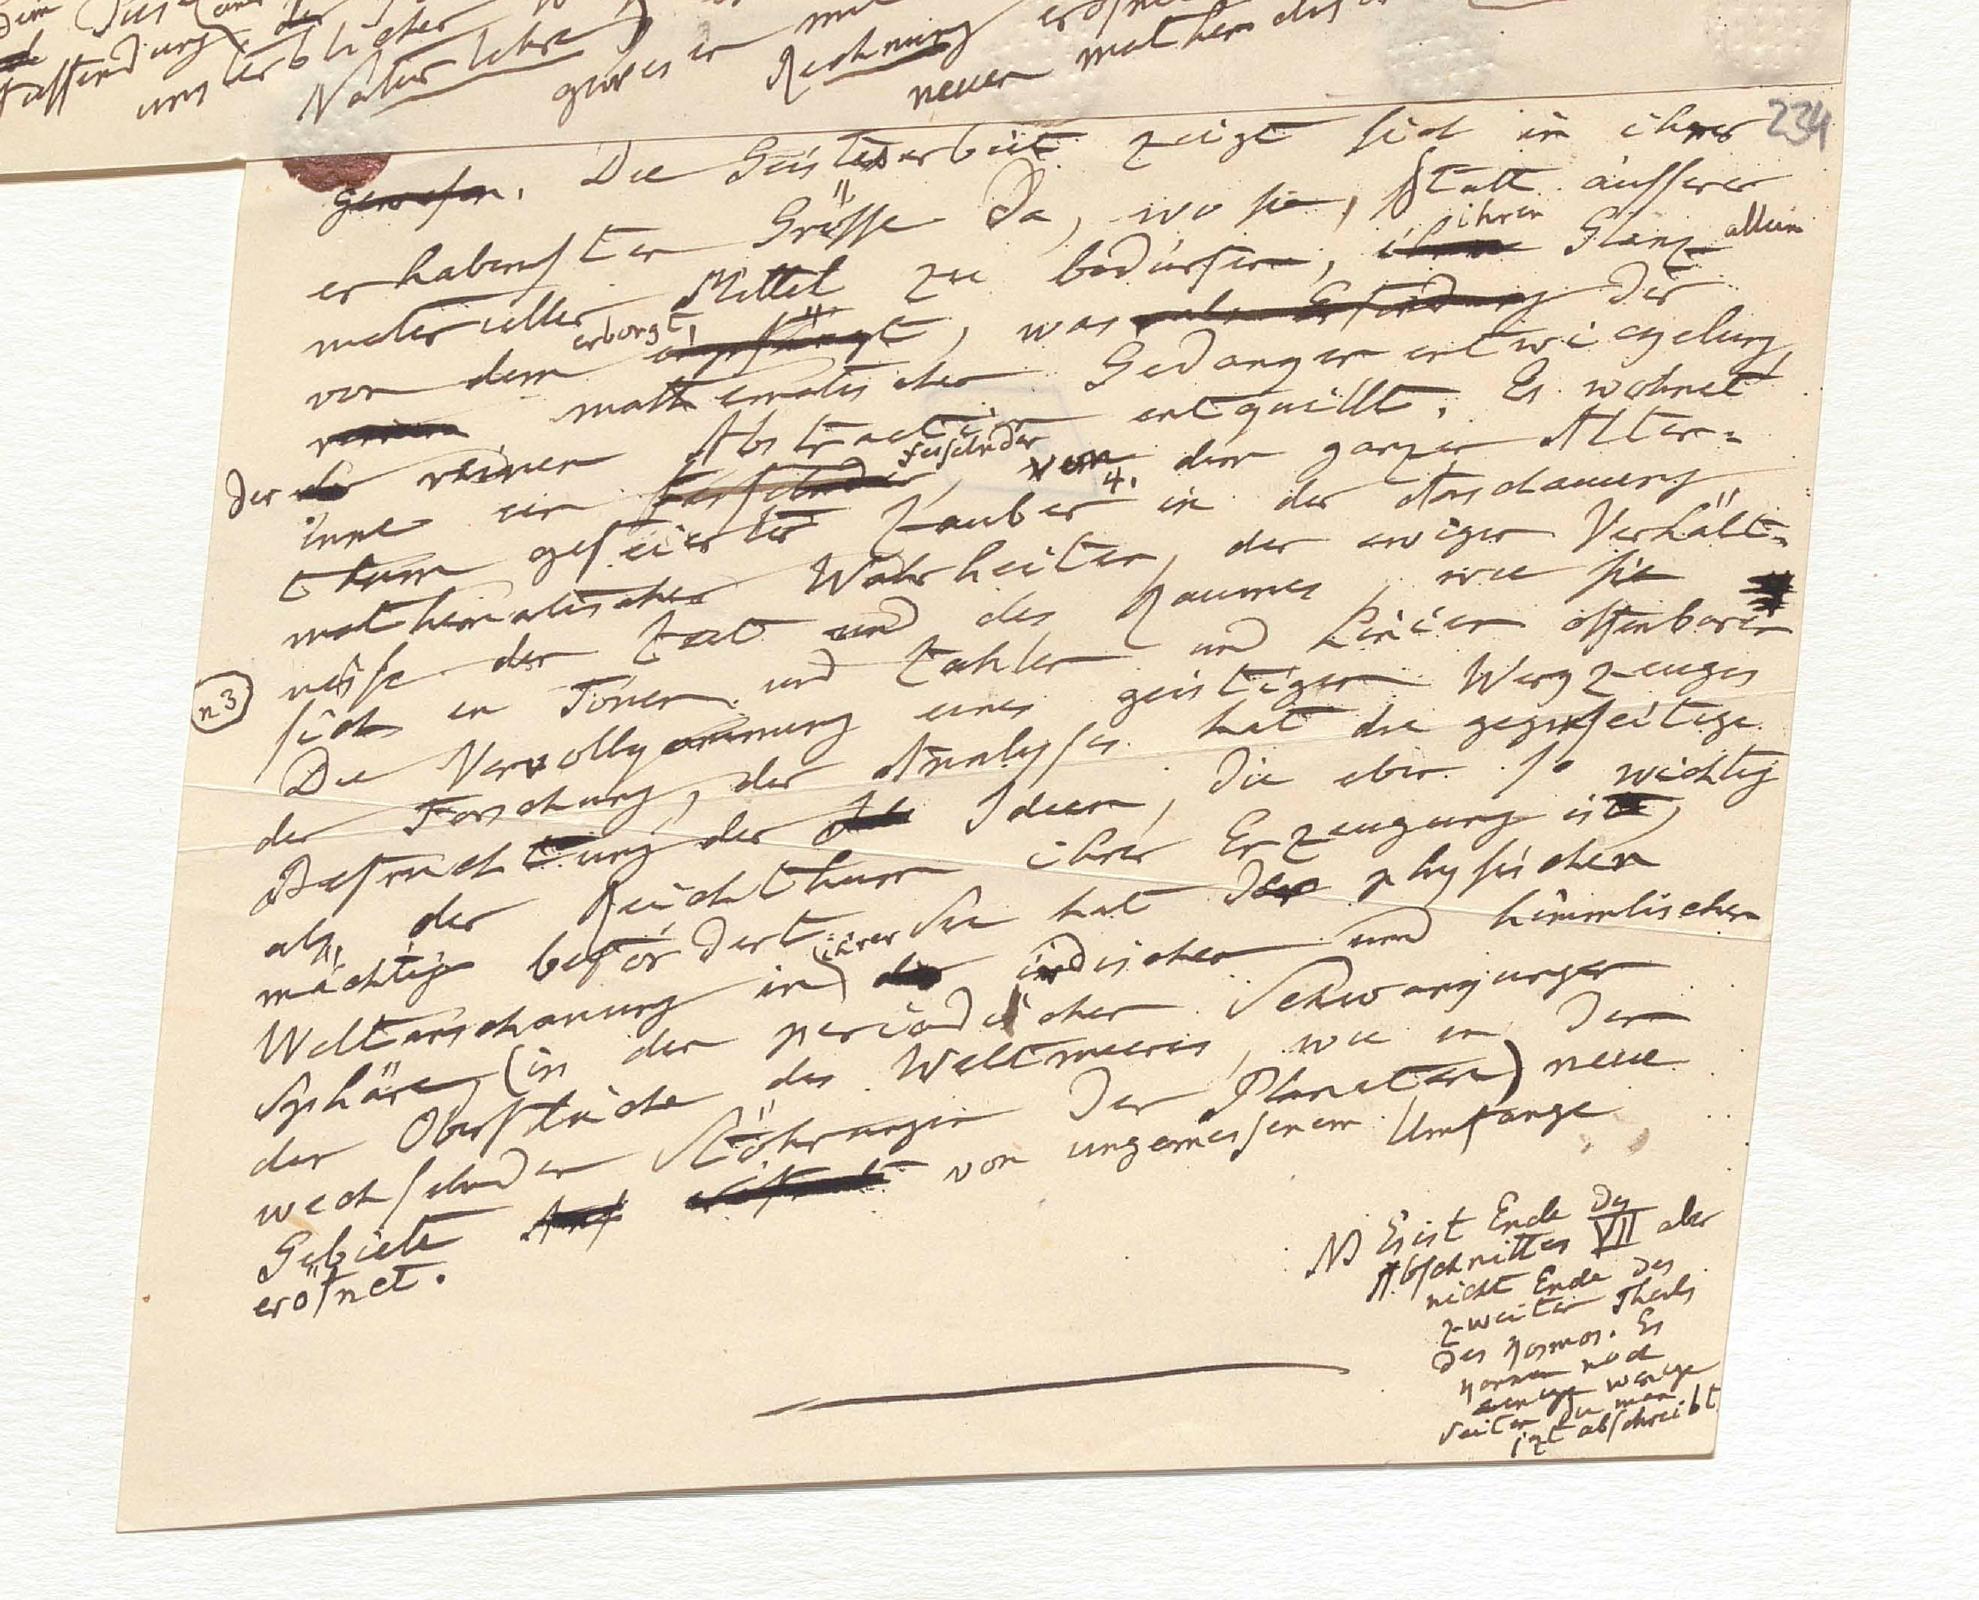 dem
unsterblicher
Naturlehre) gewesen mit
Rechnung eröfnet
neuen mathematischen
234
gewesen. Die Geistesarbeit zeigt sich in ihrer
erhabensten Grösse Da, wo sie, statt äusserer
materieller Mittel zu bedürfen, ihren Glanz allein
von dem erborgt, was der
mathematischen Gedanqenentwiqelung,
Der reinen Abstraction entquillt. Es wohnet
inne ein fesselnder, von dem ganzen Alter-
thum gefeierter Zauber 4. in der Anschauung
mathematischer Wahrheiten, der ewigen Verhält-
nisse der Zeit und des Raumes, wie sie
n 3
sich in Tönen und Zahlen und Linien offenbaren
Die Vervollqommnung eines geistigen Werqzeuges
der Forschung, der Analysis hat die gegenseitige
Befruchtung der Ideen, die eben so wichtig
als der Reichthum ihrer Erzeugung ist,
mächtig befördert. Sie hat der physischen
Weltanschauung in ihrer irdischen und himmlischen
Sphäre (in den periodischen Schwanqungen
der Oberfläche des Weltmeeres, wie in den
wechselnden Stöhrungen der Planeten) neue
Gebiete von ungemessenem Umfange
eröfnet.
NB Es ist Ende des
Abschnittes VII aber
nicht Ende des
zweiten Theils
des Kosmos. Es
kommen noch
einige wenige
Seiten die man
izt abschreibt